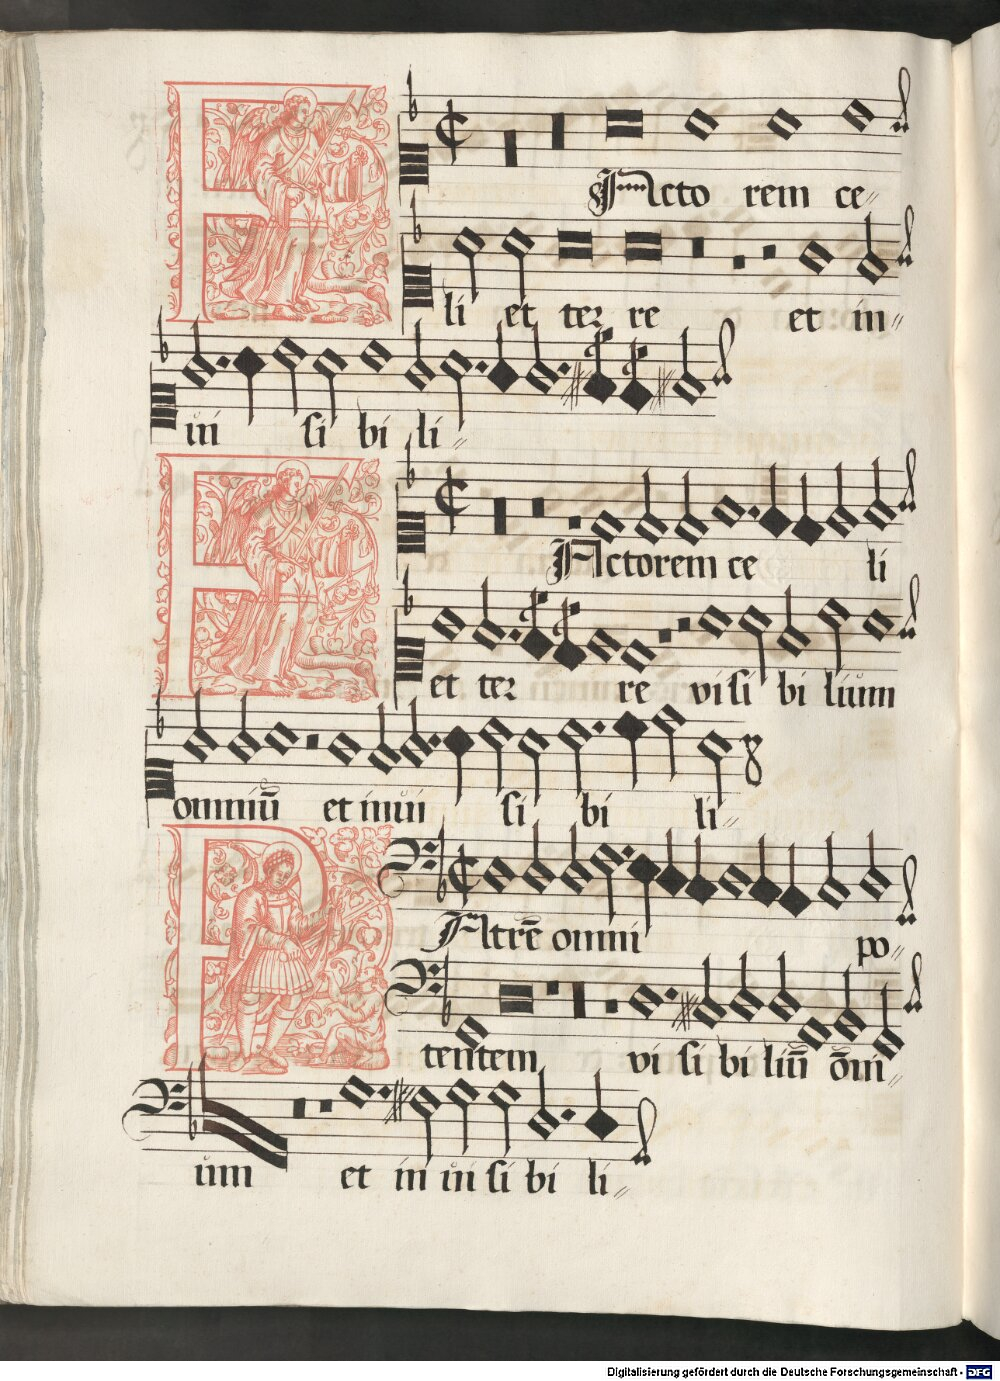 Factorem ce〃
li et terre et in〃
ui si bi li〃
Factorem ce li
et terre visi bi lium
omniū et inui si bi li〃
Patrē omni po〃
tentem vi si bi liū ōni〃
um et in ui si bi li〃
Digitalisierung gefördert durch die Deutsche Forschungsgemeinschaft - DFG